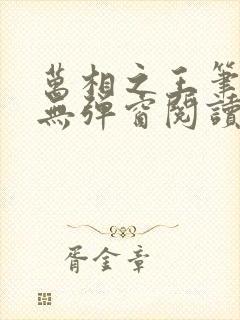 萬相之王筆
無彈窗閱讀
胥金章